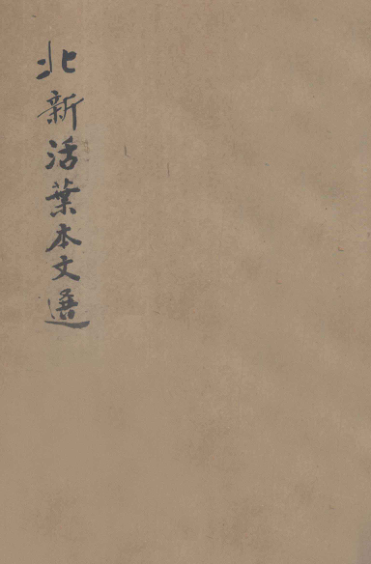 北新活葉本文選